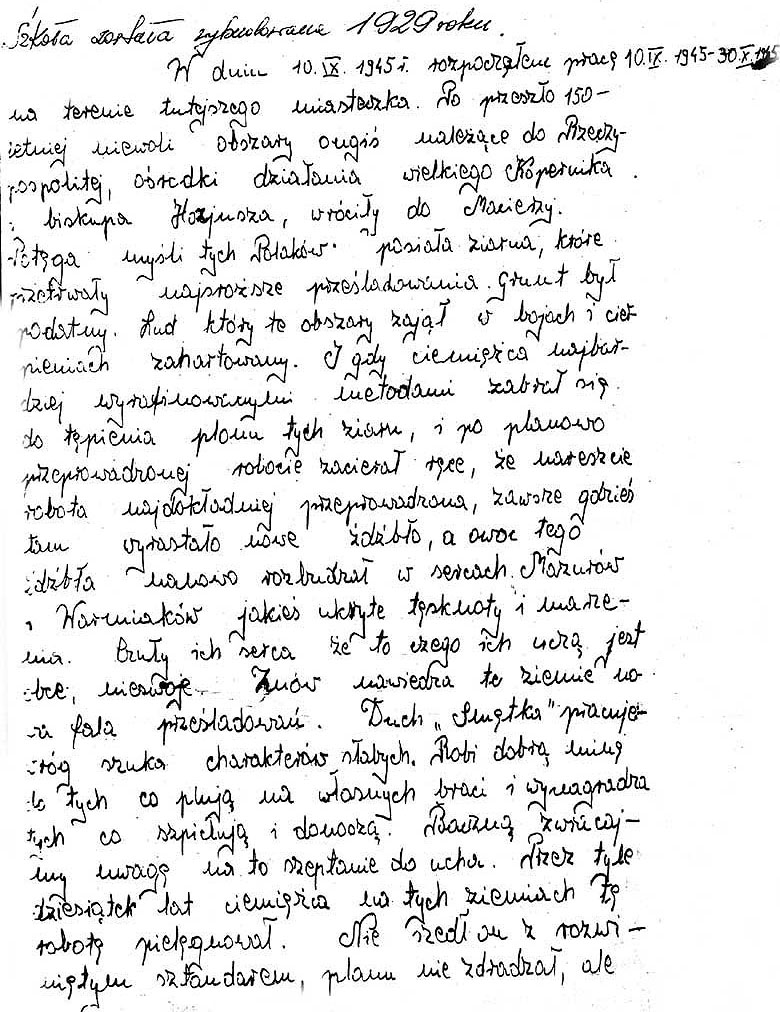 Szkoła została wybudowana 1929 roku.
W dniu 10.IX.1945 r. rozpocząłem pracę 10.IX.1945-30.X.1945
na terenie tutejszego miasteczka. Po przeszło 150-
letniej niewoli obszary ongiś należące do Rzeczy-
pospolitej, ośrodki działania wielkiego Kopernika
i biskupa Hozjusza, wróciły do Macierzy.
Potęga myśli tych Polaków posiała ziarna, które
przetrwały najproższe prześladowania. Grunt był
podatny. Lud który te obszary zajął w bojach i cier-
pieniach zahartowany. I gdy ciemięzca najbar-
dziej wyrafinowanymi metodami zabrał się
do tępienia plonu tych ziarn, i po planowo
przeprowadzonej robocie zacierał ręce, że nareszcie
robota najdokładniej przeprowadzona, zawsze gdzieś
tam wyrastało nowe źdźbło, a owoc tego
źdźbła nanowo rozbudzał w sercach Mazurów
i Warmiaków jakieś ukryte tęsknoty i marze-
nia. Czuły ich serca że to czego ich uczą jest
obce, nieswoje. Znów nawiedza te ziemie no-
wa fala prześladowań. Duch „Smętka" pracuje-
wróg szuka charakterów słabych. Robi dobrą minę
do tych co plują na własnych braci i wynagradza
tych co szpiclują i donoszą. Baczną zwracaj-
my uwagę na to szeptanie do ucha. Przez tyle
dziesiątek lat ciemięzca na tych ziemiach tę
robotę pielęgnował. Nie szedł on z rozwi-
niętym sztandarem, planu nie zdradzał, ale